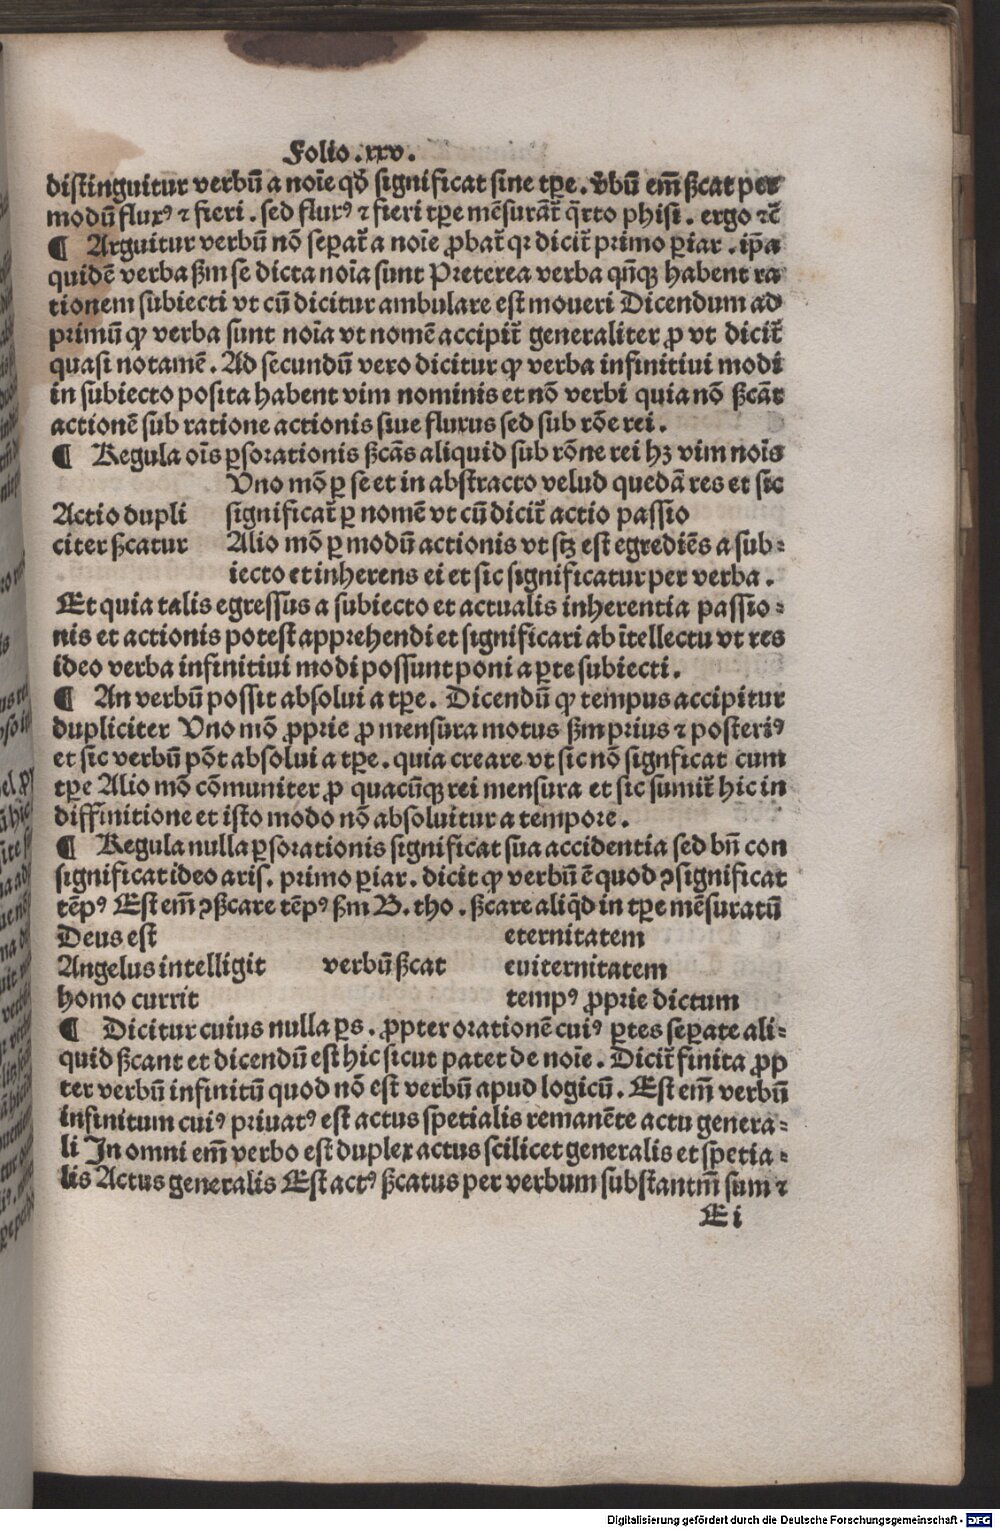 Folio .xxv.
distinguitur verbū a noīe qđ significat sine tp̄e. v̄bū em̄ ßcat per
modū flux⁹ ⁊ fieri. sed flux⁹ ⁊ fieri tp̄e mēsurāt̄ q̄rto phisi. ergo ⁊c̄
¶ Arguitur verbū nō sepat̄ a noīe ꝓbat̄ qꝛ dicit̄ primo ꝑiar. ip̄a
quidē verba ßm se dicta noīa sunt Preterea verba qn̄qꝫ habent ra
tionem subiecti vt cū dicitur ambulare est moueri Dicendum ad
primū ꝙ verba sunt noīa vt nomē accipit̄ generaliter ꝓ vt dicit̄
quasi notamē. Ad secundū vero dicitur ꝙ verba infinitiui modi
in subiecto posita habent vim nominis et nō verbi quia nō ßcāt
actionē sub ratione actionis siue fluxus sed sub rōe rei.
¶ Regula oīs ꝑs orationis ßcās aliquid sub rōne rei hꝫ vim noīs
Vno mō ꝑ se et in abstracto velud quedā res et sic
Actio dupli significat̄ ꝑ nomē vt cū dicit̄ actio passio
citer ßcatur Alio mō ꝑ modū actionis vt sꝫ est egrediēs a sub⸗
iecto et inherens ei et sic significatur per verba.
Et quia talis egressus a subiecto et actualis inherentia passio⸗
nis et actionis potest apprehendi et significari ab ītellectu vt res
ideo verba infinitiui modi possunt poni a ꝑte subiecti.
¶ An verbū possit absolui a tp̄e. Dicendū ꝙ tempus accipitur
dupliciter Vno mō ꝓprie ꝓ mensura motus ßm prius ⁊ posteri⁹
et sic verbū pōt absolui a tp̄e. quia creare vt sic nō signficat cum
tp̄e Alio mō cōmuniter ꝓ quacūqꝫ rei mensura et sic sumit̄ hic in
diffinitione et isto modo nō absoluitur a tempore.
¶ Regula nulla ꝑs orationis significat sua accidentia sed bn̄ con
significat ideo aris. primo ꝑiar. dicit ꝙ verbū ē quod ꝯsignificat
tēp⁹ Est em̄ ꝯßcare tēp⁹ ßm B. tho. ßcare aliq̄d in tp̄e mēsuratū
Deus est eternitatem
Angelus intelligit verbū ßcat euiternitatem
homo currit temp⁹ ꝓprie dictum
¶ Dicitur cuius nulla ꝑs. ꝓpter orationē cui⁹ ꝑtes seꝑate ali⸗
quid ßcant et dicendū est hic sicut patet de noīe. Dicit̄ finita ꝓp
ter verbū infinitū quod nō est verbū apud logicū. Est em̄ verbū
infinitum cui⁹ priuat⁹ est actus spetialis remanēte actu genera⸗
li In omni em̄ verbo est duplex actus scilicet generalis et spetia⸗
lis Actus generalis Est act⁹ ßcatus per verbum substantm̄ sum ⁊
E i
Digitalisierung gefördert durch die Deutsche Forschungsgemeinschaft - DFG